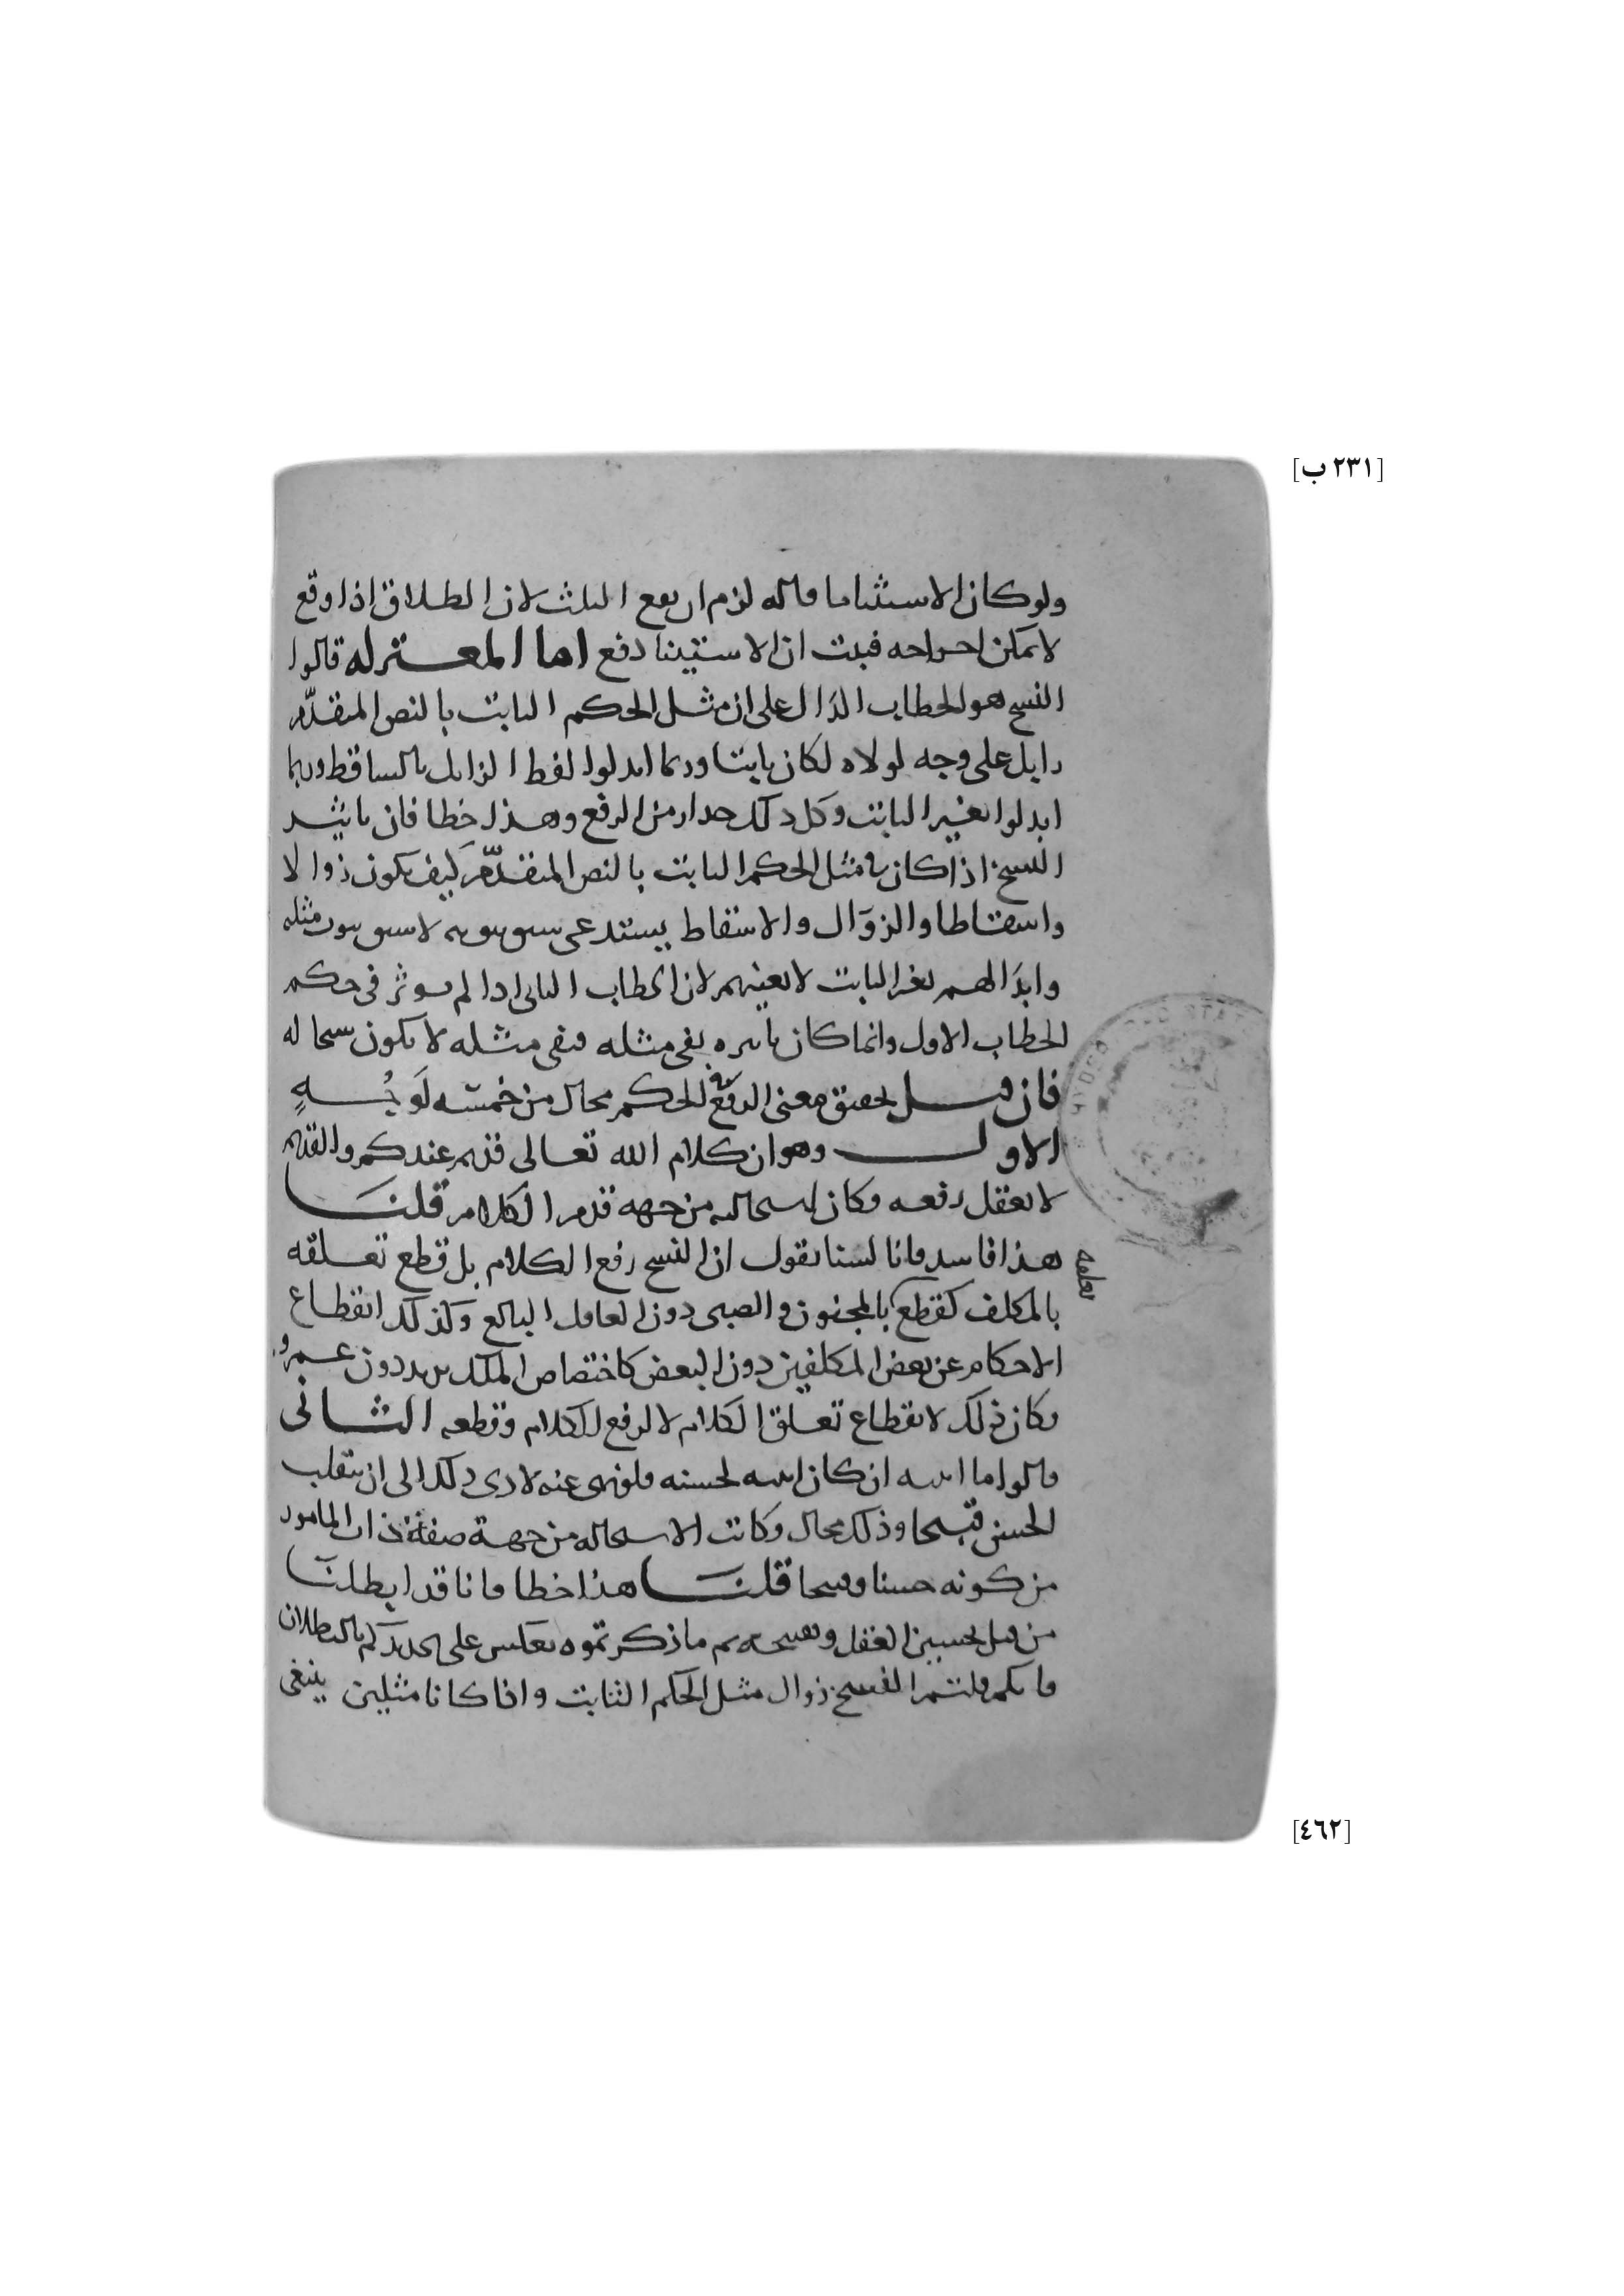 [٢٣١ ب]
ولو كان الاستثنا ما قاله لزم ان يقع الثلث لان الطلاق اذا وقع
لا يمكن اخراجه فثبت ان الاستثنا دفع اما المعتزله قالوا
النسخ هو الخطاب الدال على ان مثل الحكم الثابت بالنص المتقدّم
زايل على وجه لولاه لكان ثابتا وربما ابدلوا لفظ الزايل بالساقط وربما
ابدلوا بغير الثابت وكل ذلك حذار من الرفع وهذا خطا فان تاثير
النسخ اذا كان في مثل الحكم الثابت بالنص المتقدّم كيف يكون زوالا
واسقاطا والزوال والاسقاط يستدعى سبق ثبوته لا سبق ثبوت مثله
وابدالهم بغير الثابت لا يغنيهم لان الخطاب الثانى اذا لم يوثر فى حكم
الخطاب الاول وانما كان تاثيره بنفى مثله فنفى مثله لا يكون نسخا له
فان قيل تحقيق معنى الرفع للحكم محال من خمسه اوجُهٍ
الاول وهو ان كلام الله تعالى قديم عندكم والقديم
لا يعقل رفعه فكان استحالته من جهه قدم الكلام قلنا
هذا فاسد فانا لسنا نقول ان النسخ رفع الكلام بل قطع تعلقه
بالمكلف كقطع بالمجنون والصبى دون العاقل البالغ وكذلك انقطاع
تعلقه
الاحكام عن بعض المكلفين دون البعض كاختصاص الملك بزيد دون عمرو
فكان ذلك لانقطاع تعلق الكلام لا لرفع الكلام وقطعه الثانى
قالوا ما اثبته ان كان اثبته لحسنه فلو نهى عنه لادى ذلك الى ان ينقلب
الحسن قبيحا وذلك محال وكانت الاستحاله من جهة صفة ذات المامور
من كونه حسنا وقبيحا قلنا هذا خطا فانا قد ابطلنا
من قبل تحسين العقل وتقبيحه ثم ما ذكرتموه ينعكس على تحديدكم بالبطلان
فانكم قلتم النسخ زوال مثل الحكم الثابت واذا كانا مثلين ينبغى
[٤٦٢]